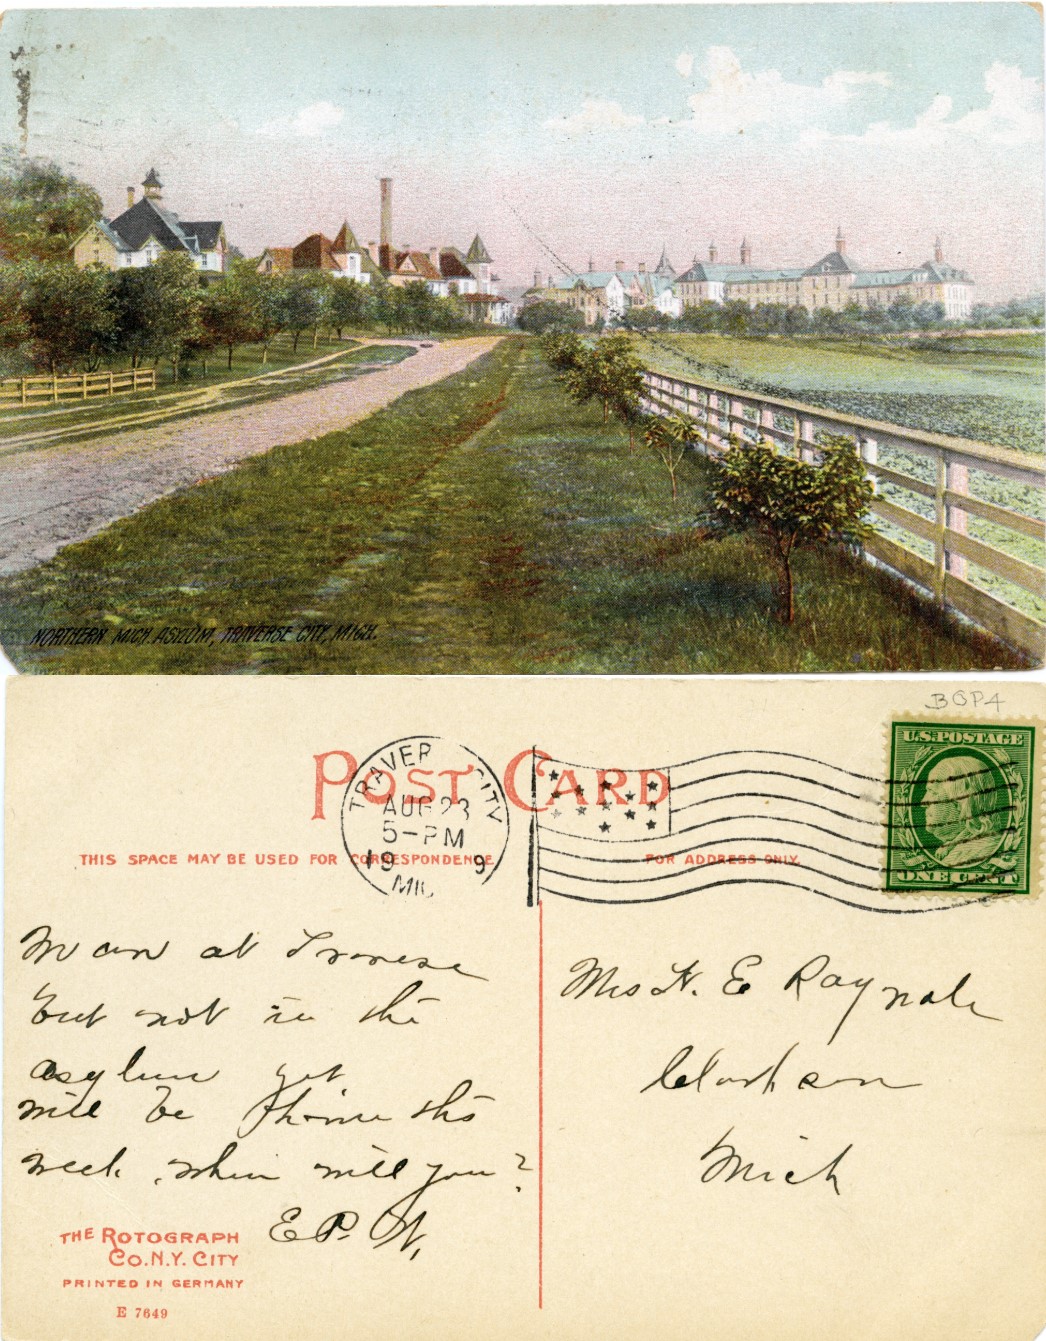 NORTHERN MICH. ASYLUM, TRAVERSE CITY, MICH.
BOP4
POST CARD
TRAVER CITY
AUG 23
5-PM
19 9
MIC
U.S. POSTAGE
ONE CENT
THIS SPACE MAY BE USED FOR CORRESPONDENCE
FOR ADDRESS ONLY.
am at Traverse
but not in the
asylum yet
will be home this
week, when will you?
E. P. W.
Mrs H. E Raynale
Clarkson
Mich
THE ROTOGRAPH
CO. N.Y. CITY
PRINTED IN GERMANY
E 7649